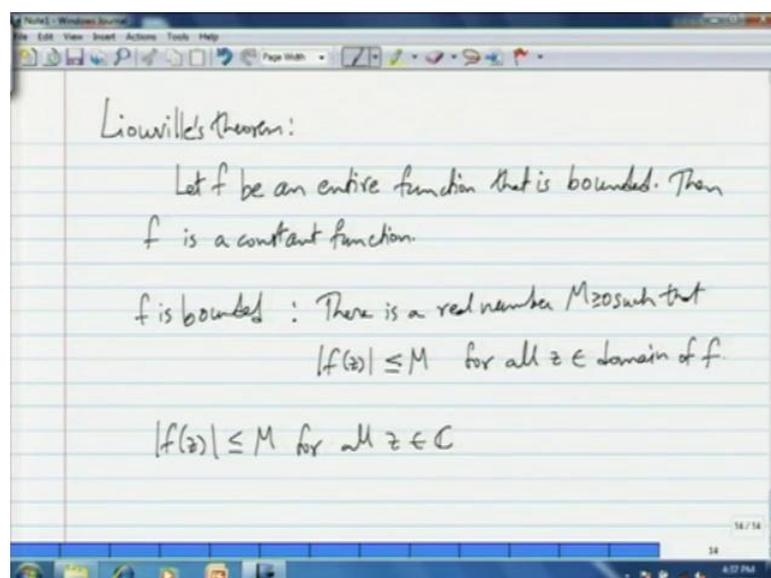 Note1 - Windows Journal
File Edit View Insert Actions Tools Help
Page Width
Liouville's theorem:
Let f be an entire function that is bounded. Then
f is a constant function.
f is bounded : There is a real number M≥0 such that
|f(z)| ≤ M for all z ∈ domain of f.
|f(z)| ≤ M for all z ∈ C
14 / 14
14
4:37 PM